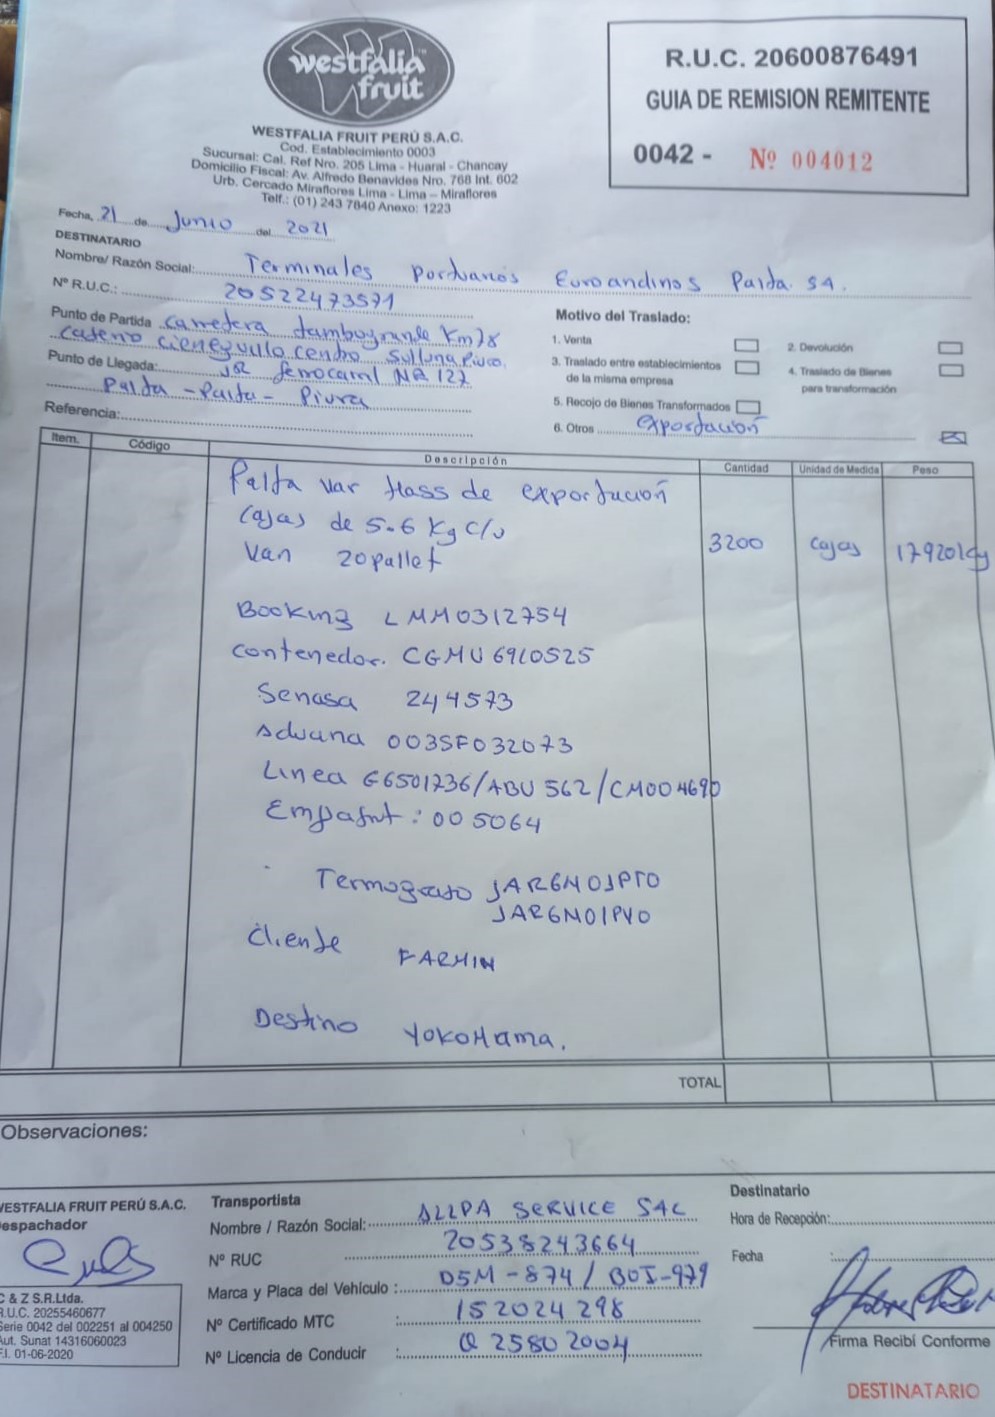 westfalia™
fruit
WESTFALIA FRUIT PERÚ S.A.C.
Cod. Establecimiento 0003
Sucursal: Cal. Ref Nro. 205 Lima - Huaral - Chancay
Domicilio Fiscal: Av. Alfredo Benavides Nro. 768 Int. 602
Urb. Cercado Miraflores Lima - Lima – Miraflores
Telf.: (01) 243 7840 Anexo: 1223
R.U.C. 20600876491
GUIA DE REMISION REMITENTE
0042 - Nº 004012
Fecha, 21 de Junio del 2021
DESTINATARIO
Nombre/ Razón Social: Terminales portuarios Euroandinos Paita SA.
Nº R.U.C.: 20522473571
Punto de Partida carretera tambogrande Km 78
caserio cieneguillo centro Sullana Piura
Punto de Llegada: JR ferrocarril NR 127
Paita - Paita - Piura
Referencia:
Motivo del Traslado:
1. Venta
2. Devolución
3. Traslado entre establecimientos
de la misma empresa
4. Traslado de Bienes
para transformación
5. Recojo de Bienes Transformados
6. Otros exportación
Item. Código Descripción Cantidad Unidad de Medida Peso
Palta var Hass de exportación
Cajas de 5.6 Kg c/u
Van 20 pallet 3200 cajas 17920 kg
Booking LMM0312754
Contenedor. CGMU 6910525
Senasa 244573
Aduana 003SF032073
Linea G6501736/ABU 562/CM004690
: 005064
Termografo JAR6M01PTO
JAR6M01PVO
Cliente FARMIN
Destino YOKOHama.
TOTAL
Observaciones:
WESTFALIA FRUIT PERÚ S.A.C.
espachador
C & Z S.R.Ltda.
R.U.C. 20255460677
Serie 0042 del 002251 al 004250
Aut. Sunat 14316060023
F.I. 01-06-2020
Transportista
Nombre / Razón Social: ALLPA SERVICE SAC
Nº RUC 20538243664
Marca y Placa del Vehículo : D5M-874 / BOI-979
Nº Certificado MTC : 152024298
Nº Licencia de Conducir : Q 25802004
Destinatario
Hora de Recepción:
Fecha :
Firma Recibí Conforme
DESTINATARIO